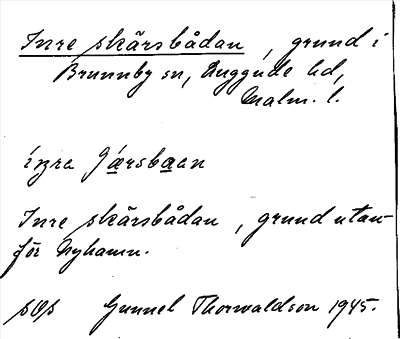 Inre skärsbådan, grund i
Brunnby sn, Luggude hd,
Malm. l.
Inre skärsbådan, grund utan-
för Nyhamn.
sOs Gunnel Thorwaldson 1945.